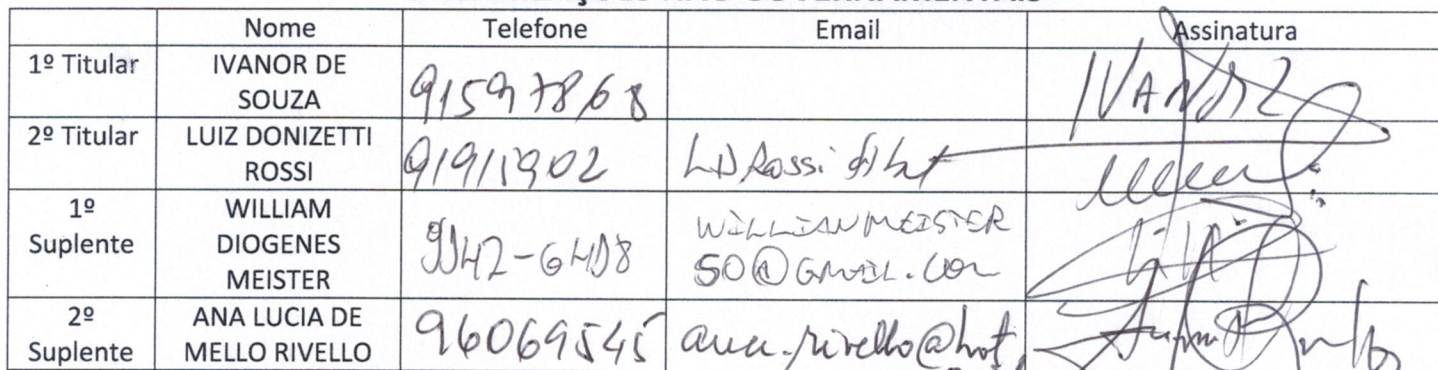 Nome Telefone Email Assinatura
1º Titular IVANOR DE SOUZA 91597868 IVANOR
2º Titular LUIZ DONIZETTI ROSSI 91911902 LDRossi
1º Suplente WILLIAM DIOGENES MEISTER WILLIANMEISTER
50@GMAIL.COM
2º Suplente ANA LUCIA DE MELLO RIVELLO 96069545 ana.rivello@hot